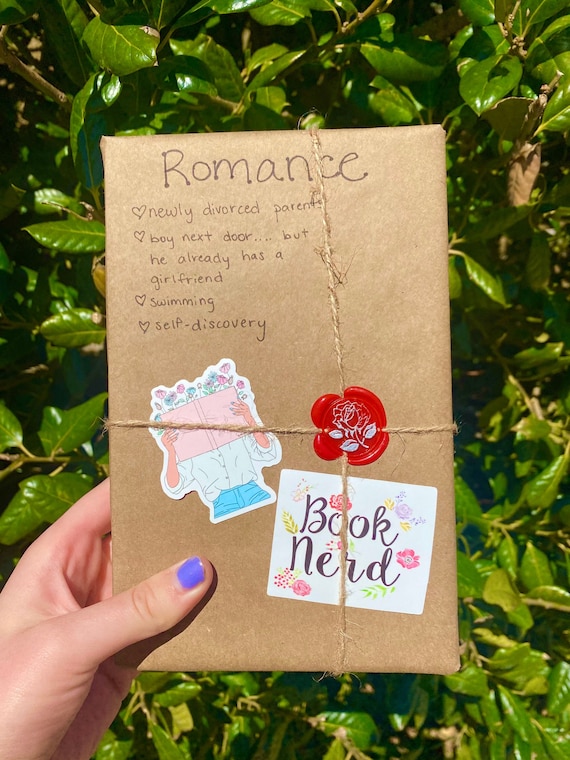 Romance
♡ newly divorced parents
♡ boy next door.... but
he already has a
girlfriend
♡ swimming
♡ self-discovery
Book
Nerd